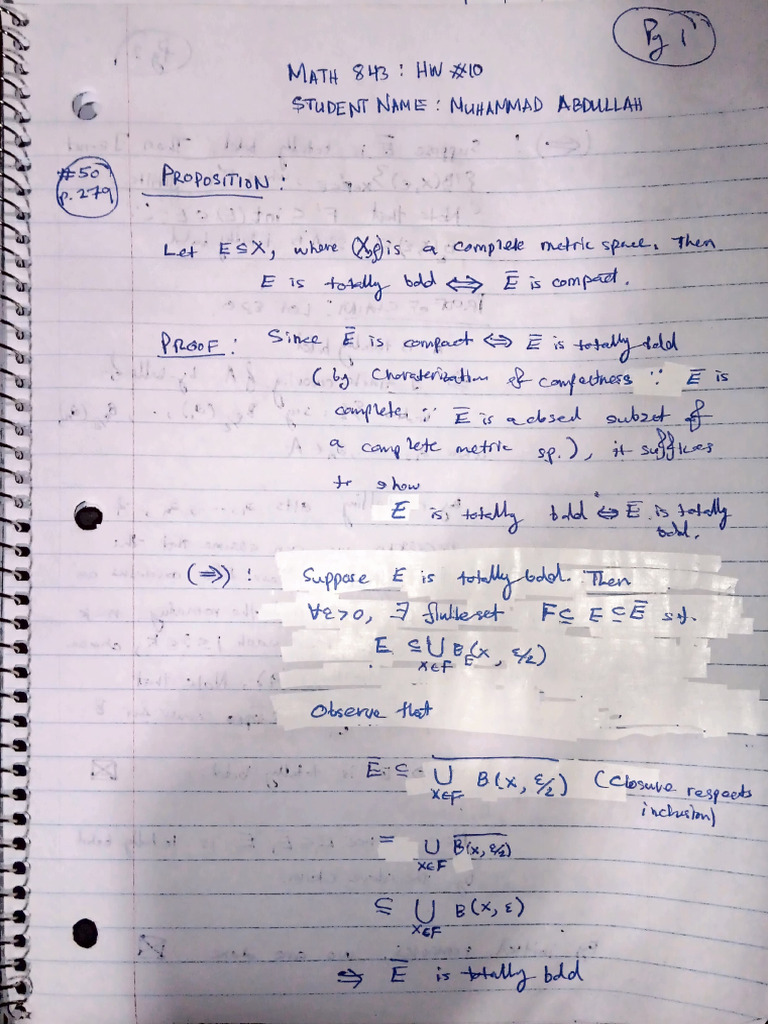 Pg 1
MATH 843 : HW #10
STUDENT NAME : MUHAMMAD ABDULLAH
#50
p. 279
PROPOSITION :
Let E ⊆ X, where (X,ρ) is a complete metric space. Then
E is totally bdd ⟺ E̅ is compact.
PROOF : Since E̅ is compact ⟺ E̅ is totally bdd
(by Charaterization of compactness ∵ E̅ is
complete ∵ E̅ is a closed subset of
a complete metric sp.), it suffices
to show
E is totally bdd ⟺ E̅ is totally
bdd.
(⇒) : Suppose E is totally bdd. Then
∀ε>0, ∃ finite set F ⊆ E ⊆ E̅ s.t.
E ⊆ ⋃_{x∈F} B_E(x, ε/2)
Observe that
E̅ ⊆ \overline{⋃_{x∈F} B(x, ε/2)} (Closure respects
inclusion)
= ⋃_{x∈F} \overline{B(x, ε/2)}
⊆ ⋃_{x∈F} B(x, ε)
⇒ E̅ is totally bdd